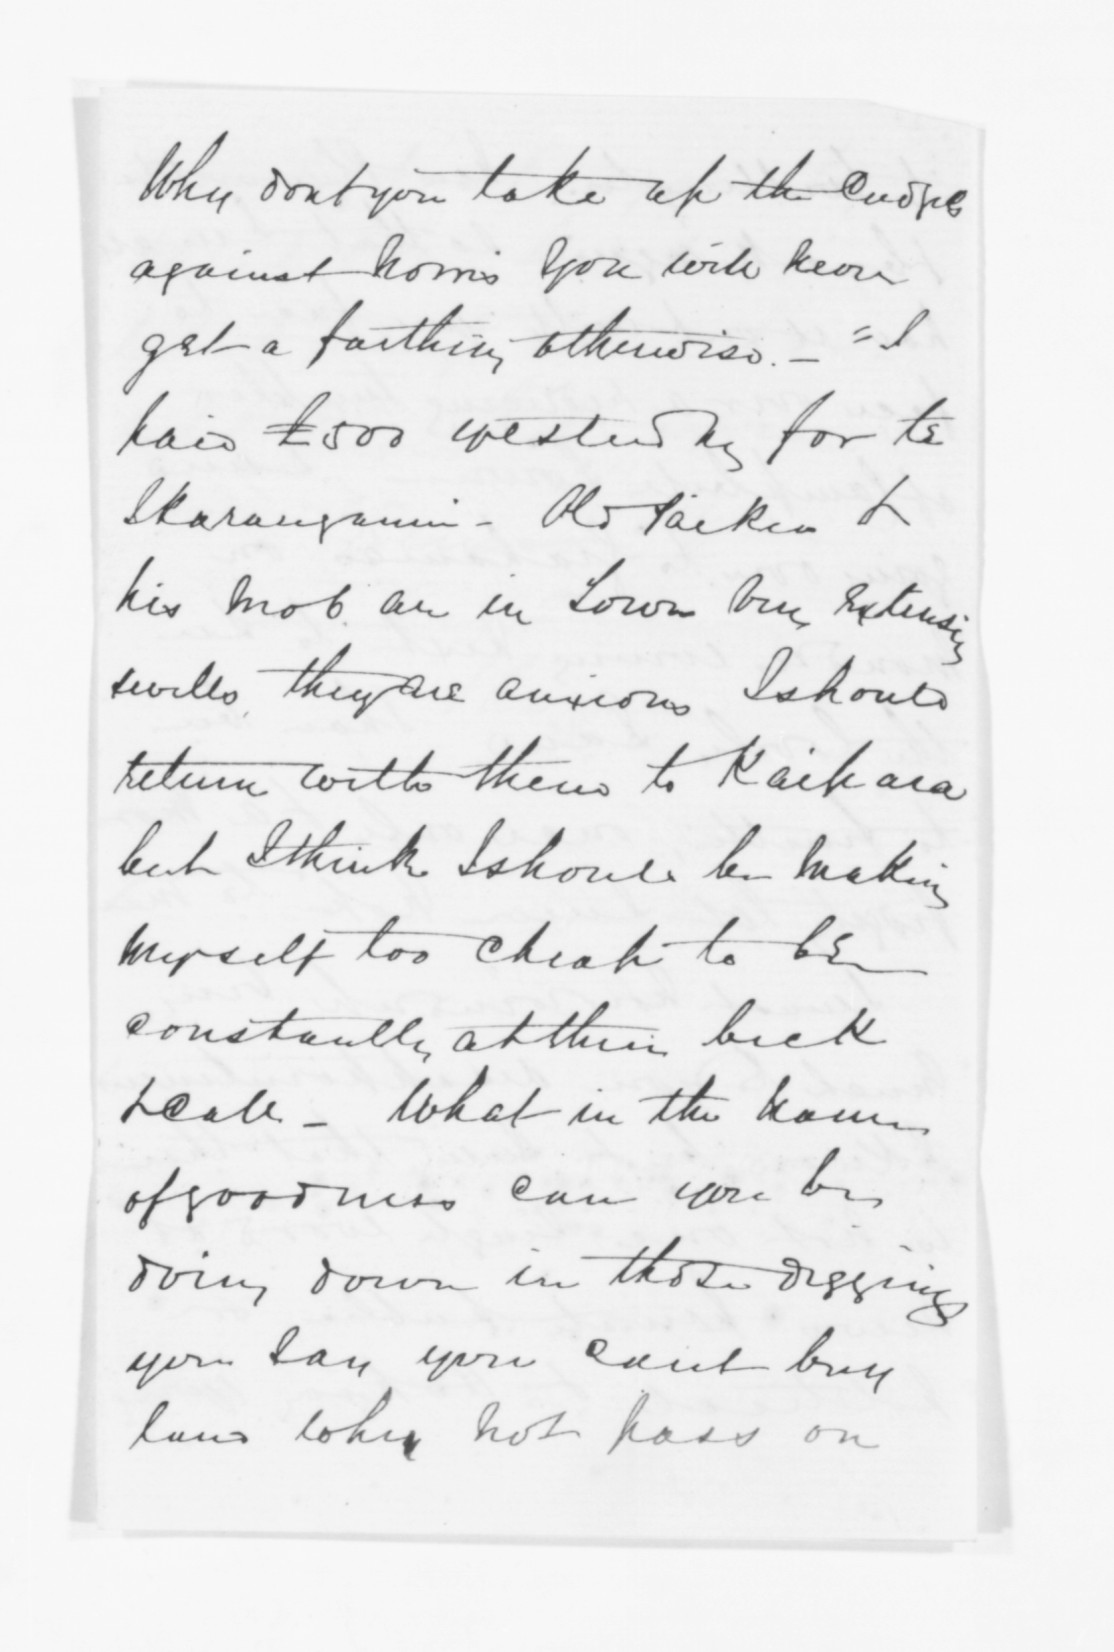 Why dont you take up the Cudgels
against Morris You will never
get a farthing otherwise. - "I
paid £500 yesterday for te
Ikaranganui - Old Parker &
his mob are in Town very extensive
swells, they are anxious I should
return with them to Kaihara
but I think I should be making
myself too cheap to be
constantly at their beck
& call - What in the name
of goodness can you be
doing down in those diggings
you say you cant buy
land why not pass on